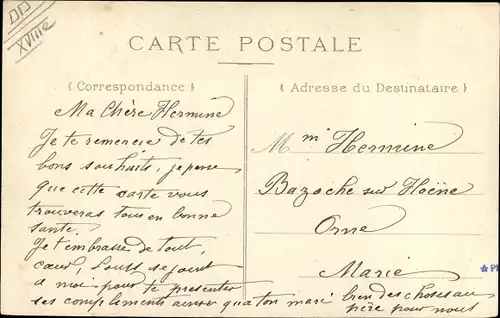 DD
XVIIIe
CARTE POSTALE
( Correspondance )
( Adresse du Destinataire )
Ma Chère Hermine
Je te remercie de tes
bons souhaits, je pense
que cette carte vous
trouveras tous en bonne
santé.
Je t'embrasse de tout,
cœur, Louis se joint
a moi pour te presenter
ses compliments ainsi qua ton mari
Mme Hermine
Bazoche sur Hoëne
Orne
Marie
bien des choses au
père pour nous